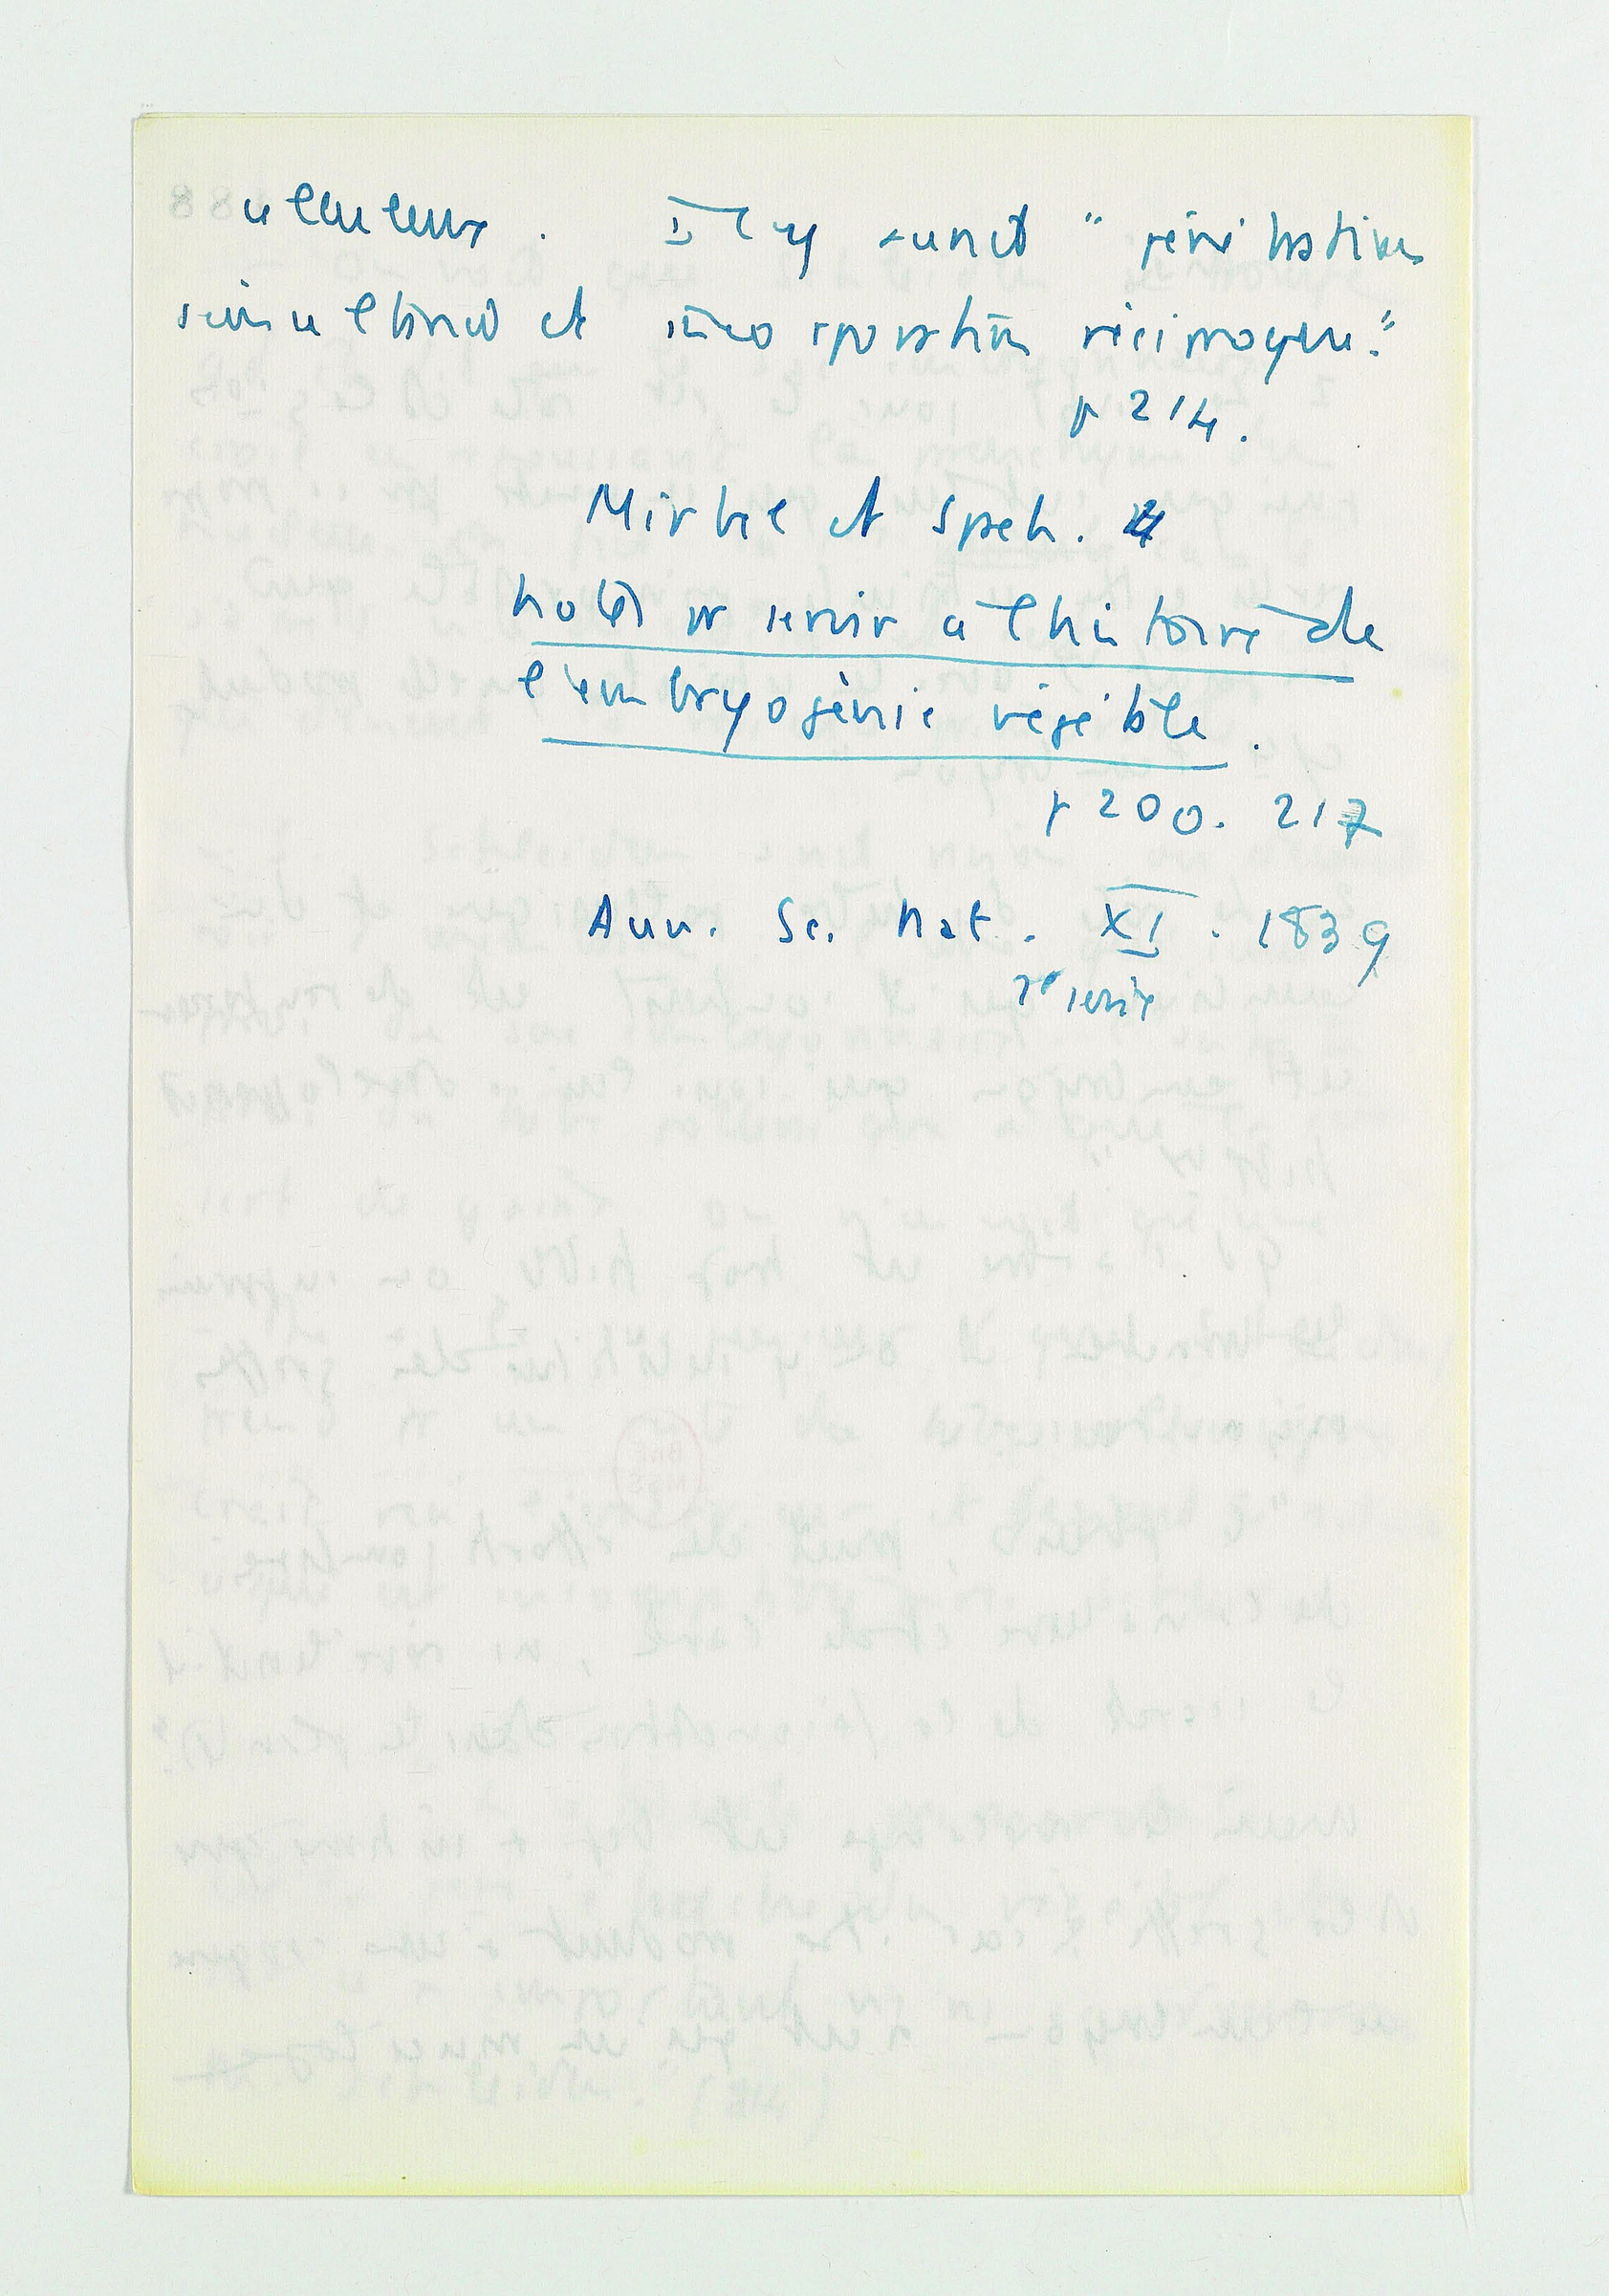 celluleux. Il y aurait "pénétration
simultanée et incorporation réciproque."
p 214.
Mirbel et Spach.
notes pr servir à l'histoire de
l'embryogénie végétale.
p 200. 217
Ann. Sc. Nat. XI. 1839
2e série